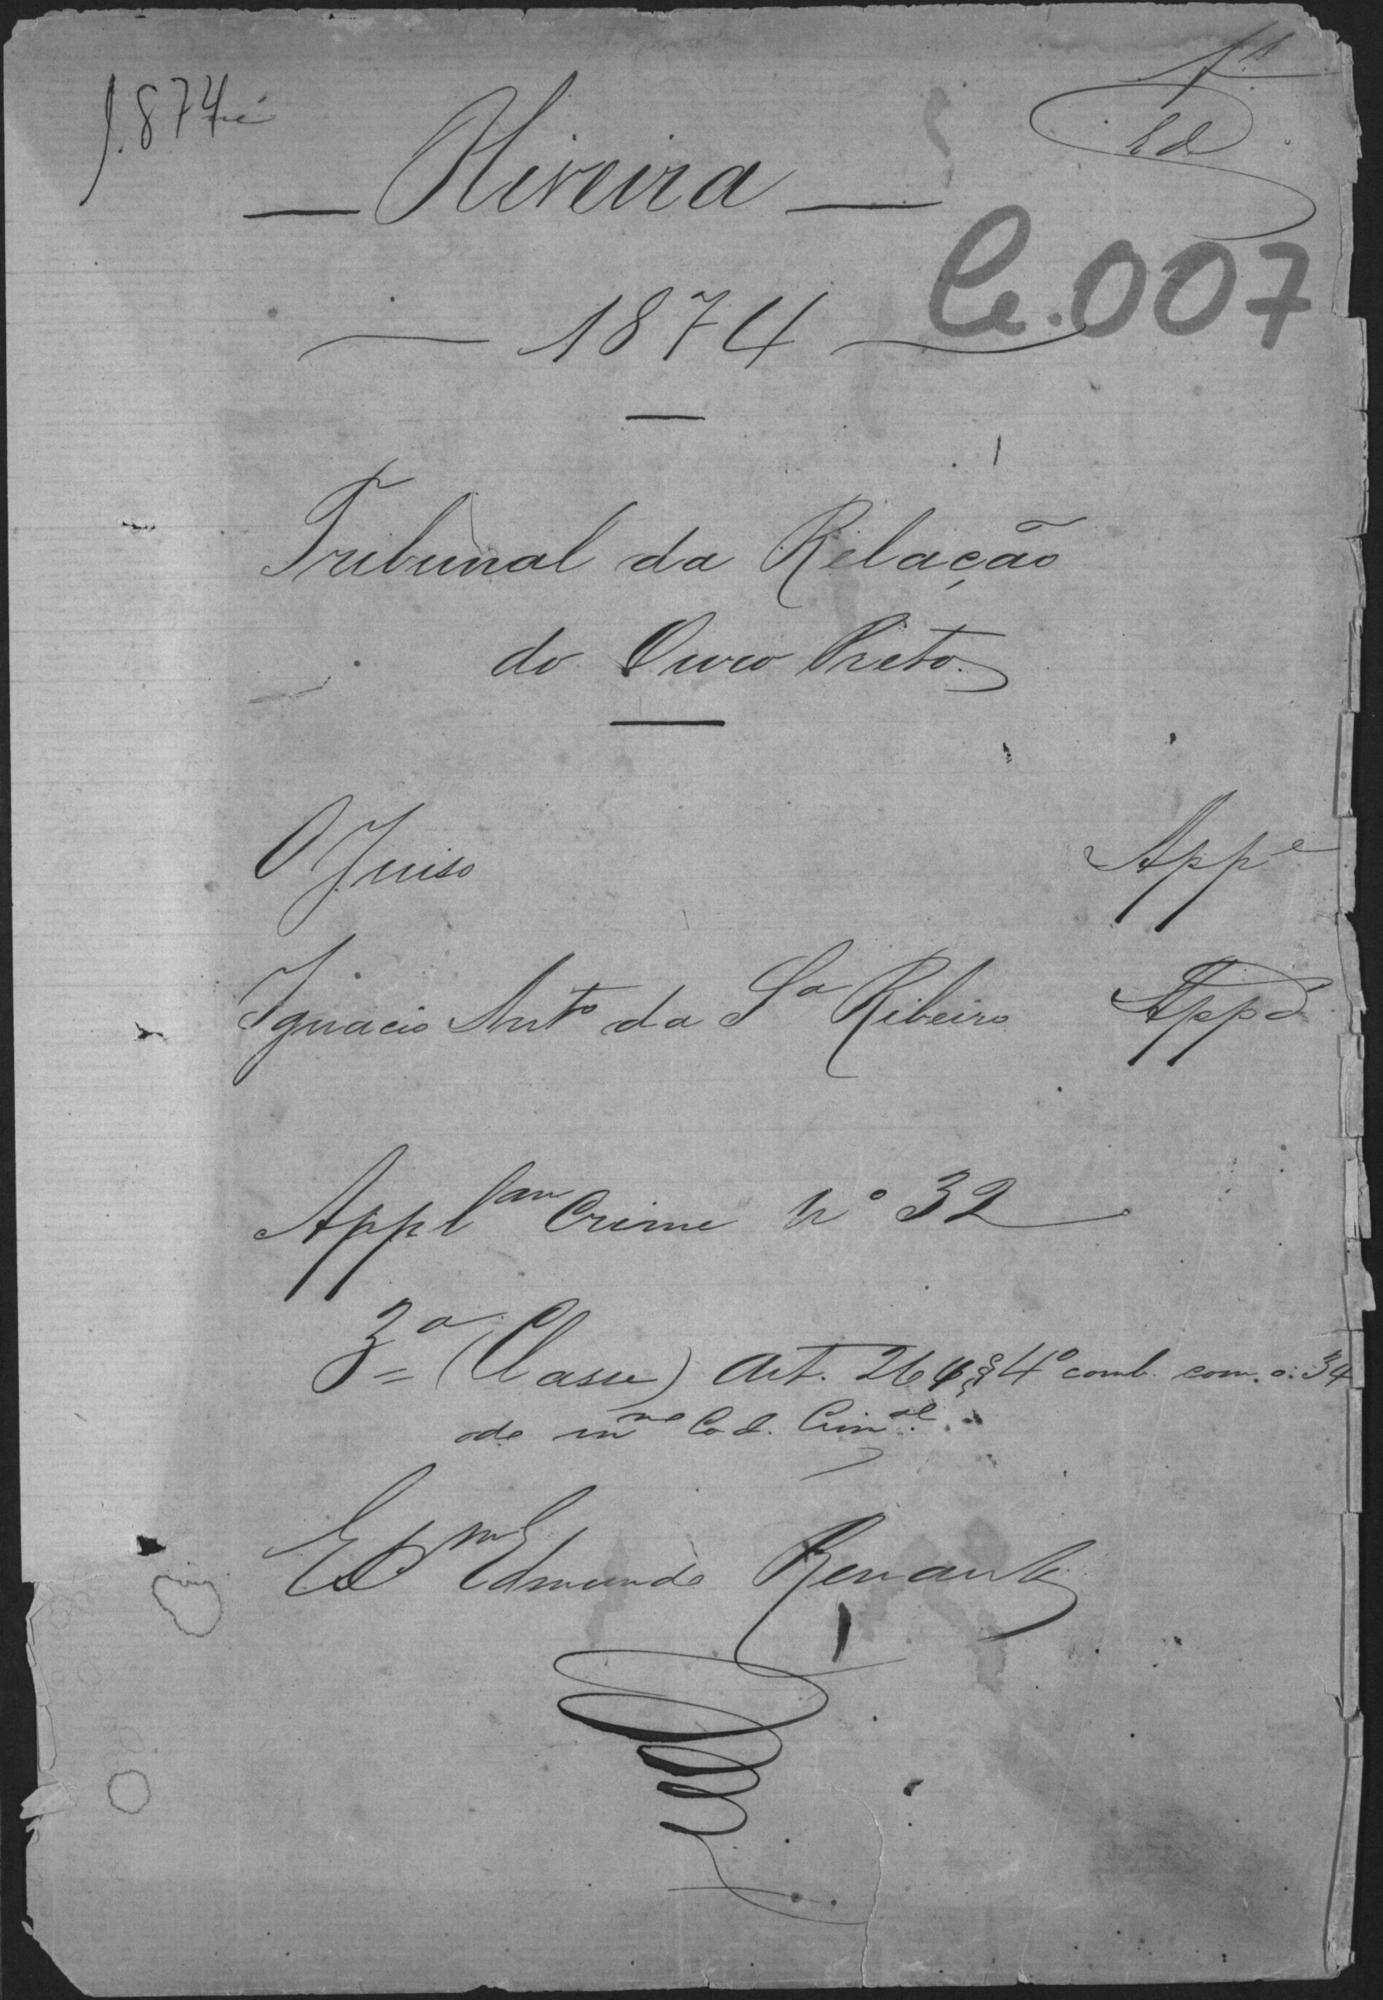 1.874
Oliveira
Cr.007
1874
Tribunal da Relação
do Ouro Preto
O Juiso Appe
Ignacio Anto da Sa Ribeiro Appd
Applam Crime No 32
3a (Classe) Art. 264 § 4o comb. com. o. 34
do mmo Cod. Crimal
Esm Edmundo Renault